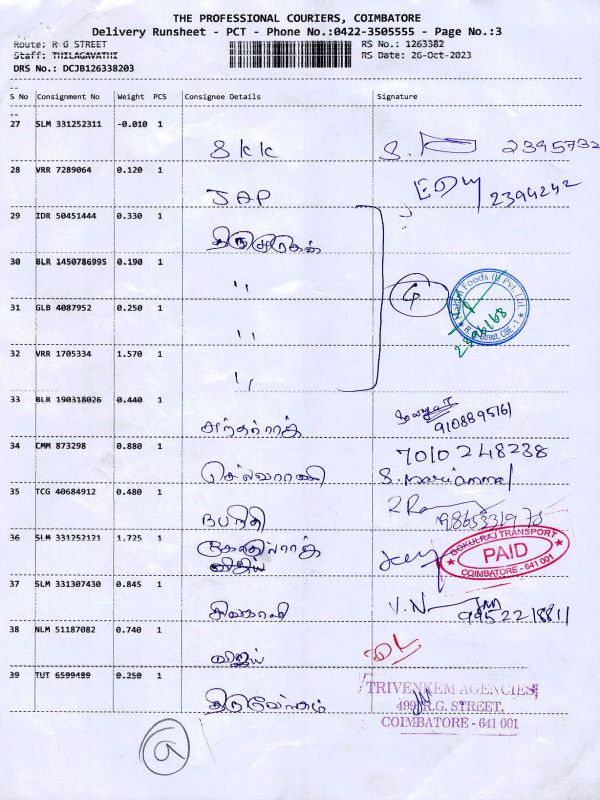 THE PROFESSIONAL COURIERS, COIMBATORE
Delivery Runsheet - PCT - Phone No.:0422-3505555 - Page No.:3
Route: R G STREET RS No.: 1263382
Staff: THILAGAVATHI RS Date: 26-Oct-2023
DRS No.: DCJB126338203
S No Consignment No Weight PCS Consignee Details Signature
27 SLM 331252311 -0.010 1
SKK S. 2395732
28 VRR 7289064 0.120 1
JAP 2394242
29 IDR 50451444 0.330 1
திருமுருகன்
30 BLR 1450786995 0.190 1
" 4
31 GLB 4087952 0.250 1
" Foods (I) Pvt. Ltd. R.G. Street, CBE - 1
2396168
32 VRR 1705334 1.570 1
"
33 BLR 190318026 0.440 1
9108895161
34 CMM 873298 0.880 1 7010248238
செல்வராணி S. Mariammal
35 TCG 40684912 0.480 1
36 SLM 331252121 1.725 1
விஜய்
GOKULRAJ TRANSPORT
PAID
COIMBATORE - 641 001
37 SLM 331307430 0.845 1
V.N 9952218811
38 NLM 51187082 0.740 1
விஜய்
39 TUT 6599489 0.250 1
TRIVENKEM AGENCIES
499, R.G. STREET,
COIMBATORE - 641 001